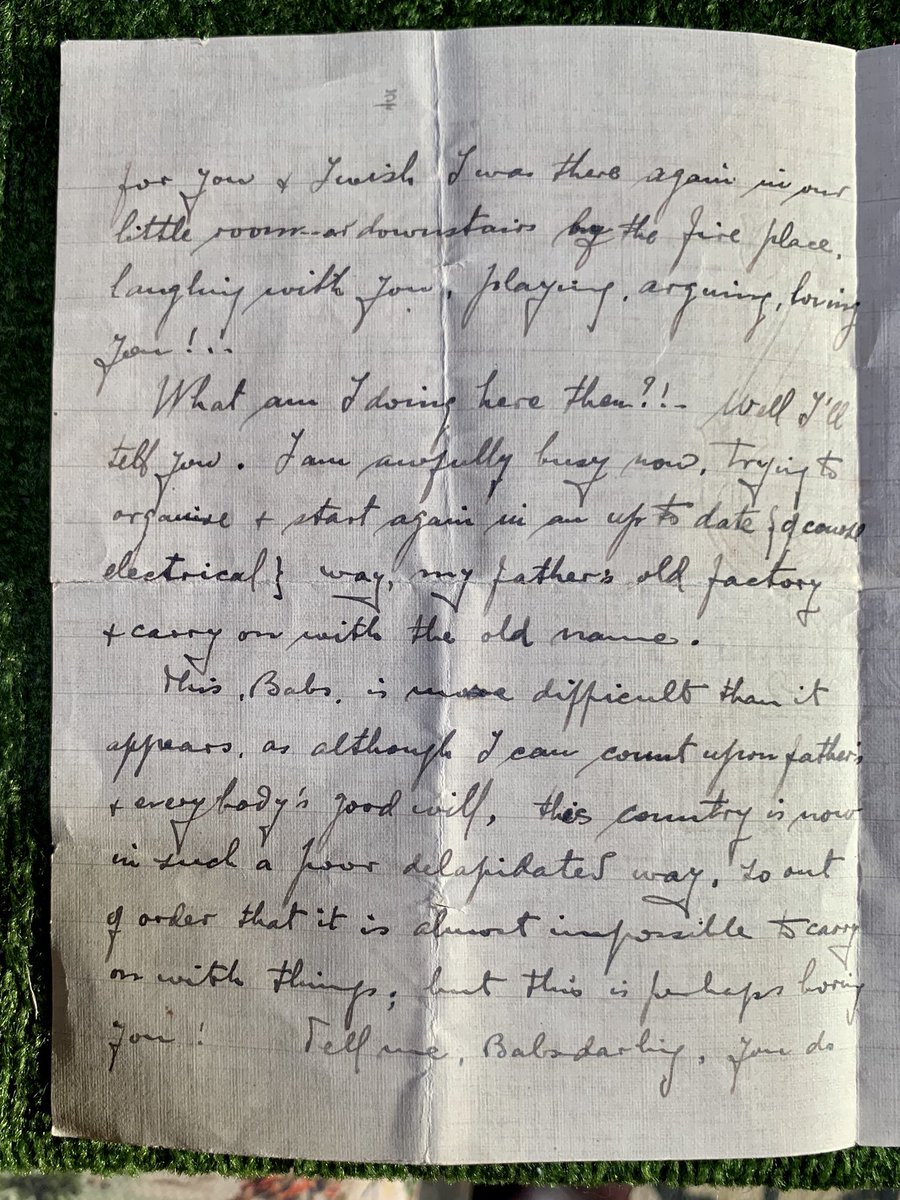 for you + I wish I was there again in our
little room - or downstairs by the fire place,
laughing with you, playing, arguing, loving
you!...
What am I doing here then?!- Well I'll
tell you. I am awfully busy now, trying to
organise + start again in an up to date {of course
electrical} way, my father's old factory
+ carry on with the old name.
This, Babs, is more difficult than it
appears, as although I can count upon father's
+ everybody's good will, this country is now
in such a poor delapidated way, so out
of order that it is almost impossible to carry
on with things; but this is perhaps boring
you! Tell me, Babsdarling, you do